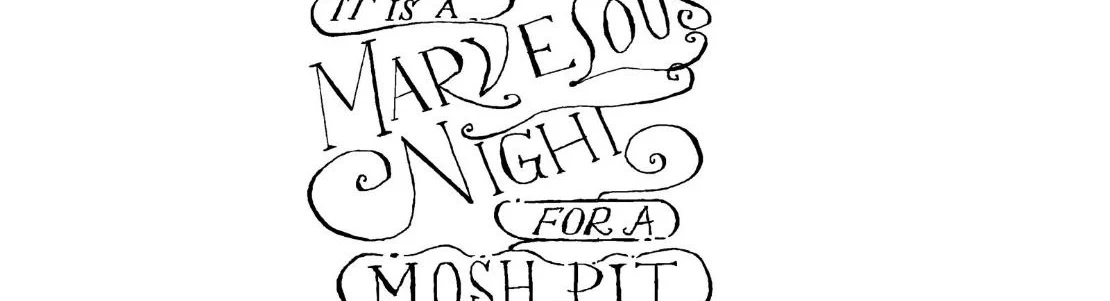 IT IS A
MARVELOUS
NIGHT
FOR A
MOSH PIT